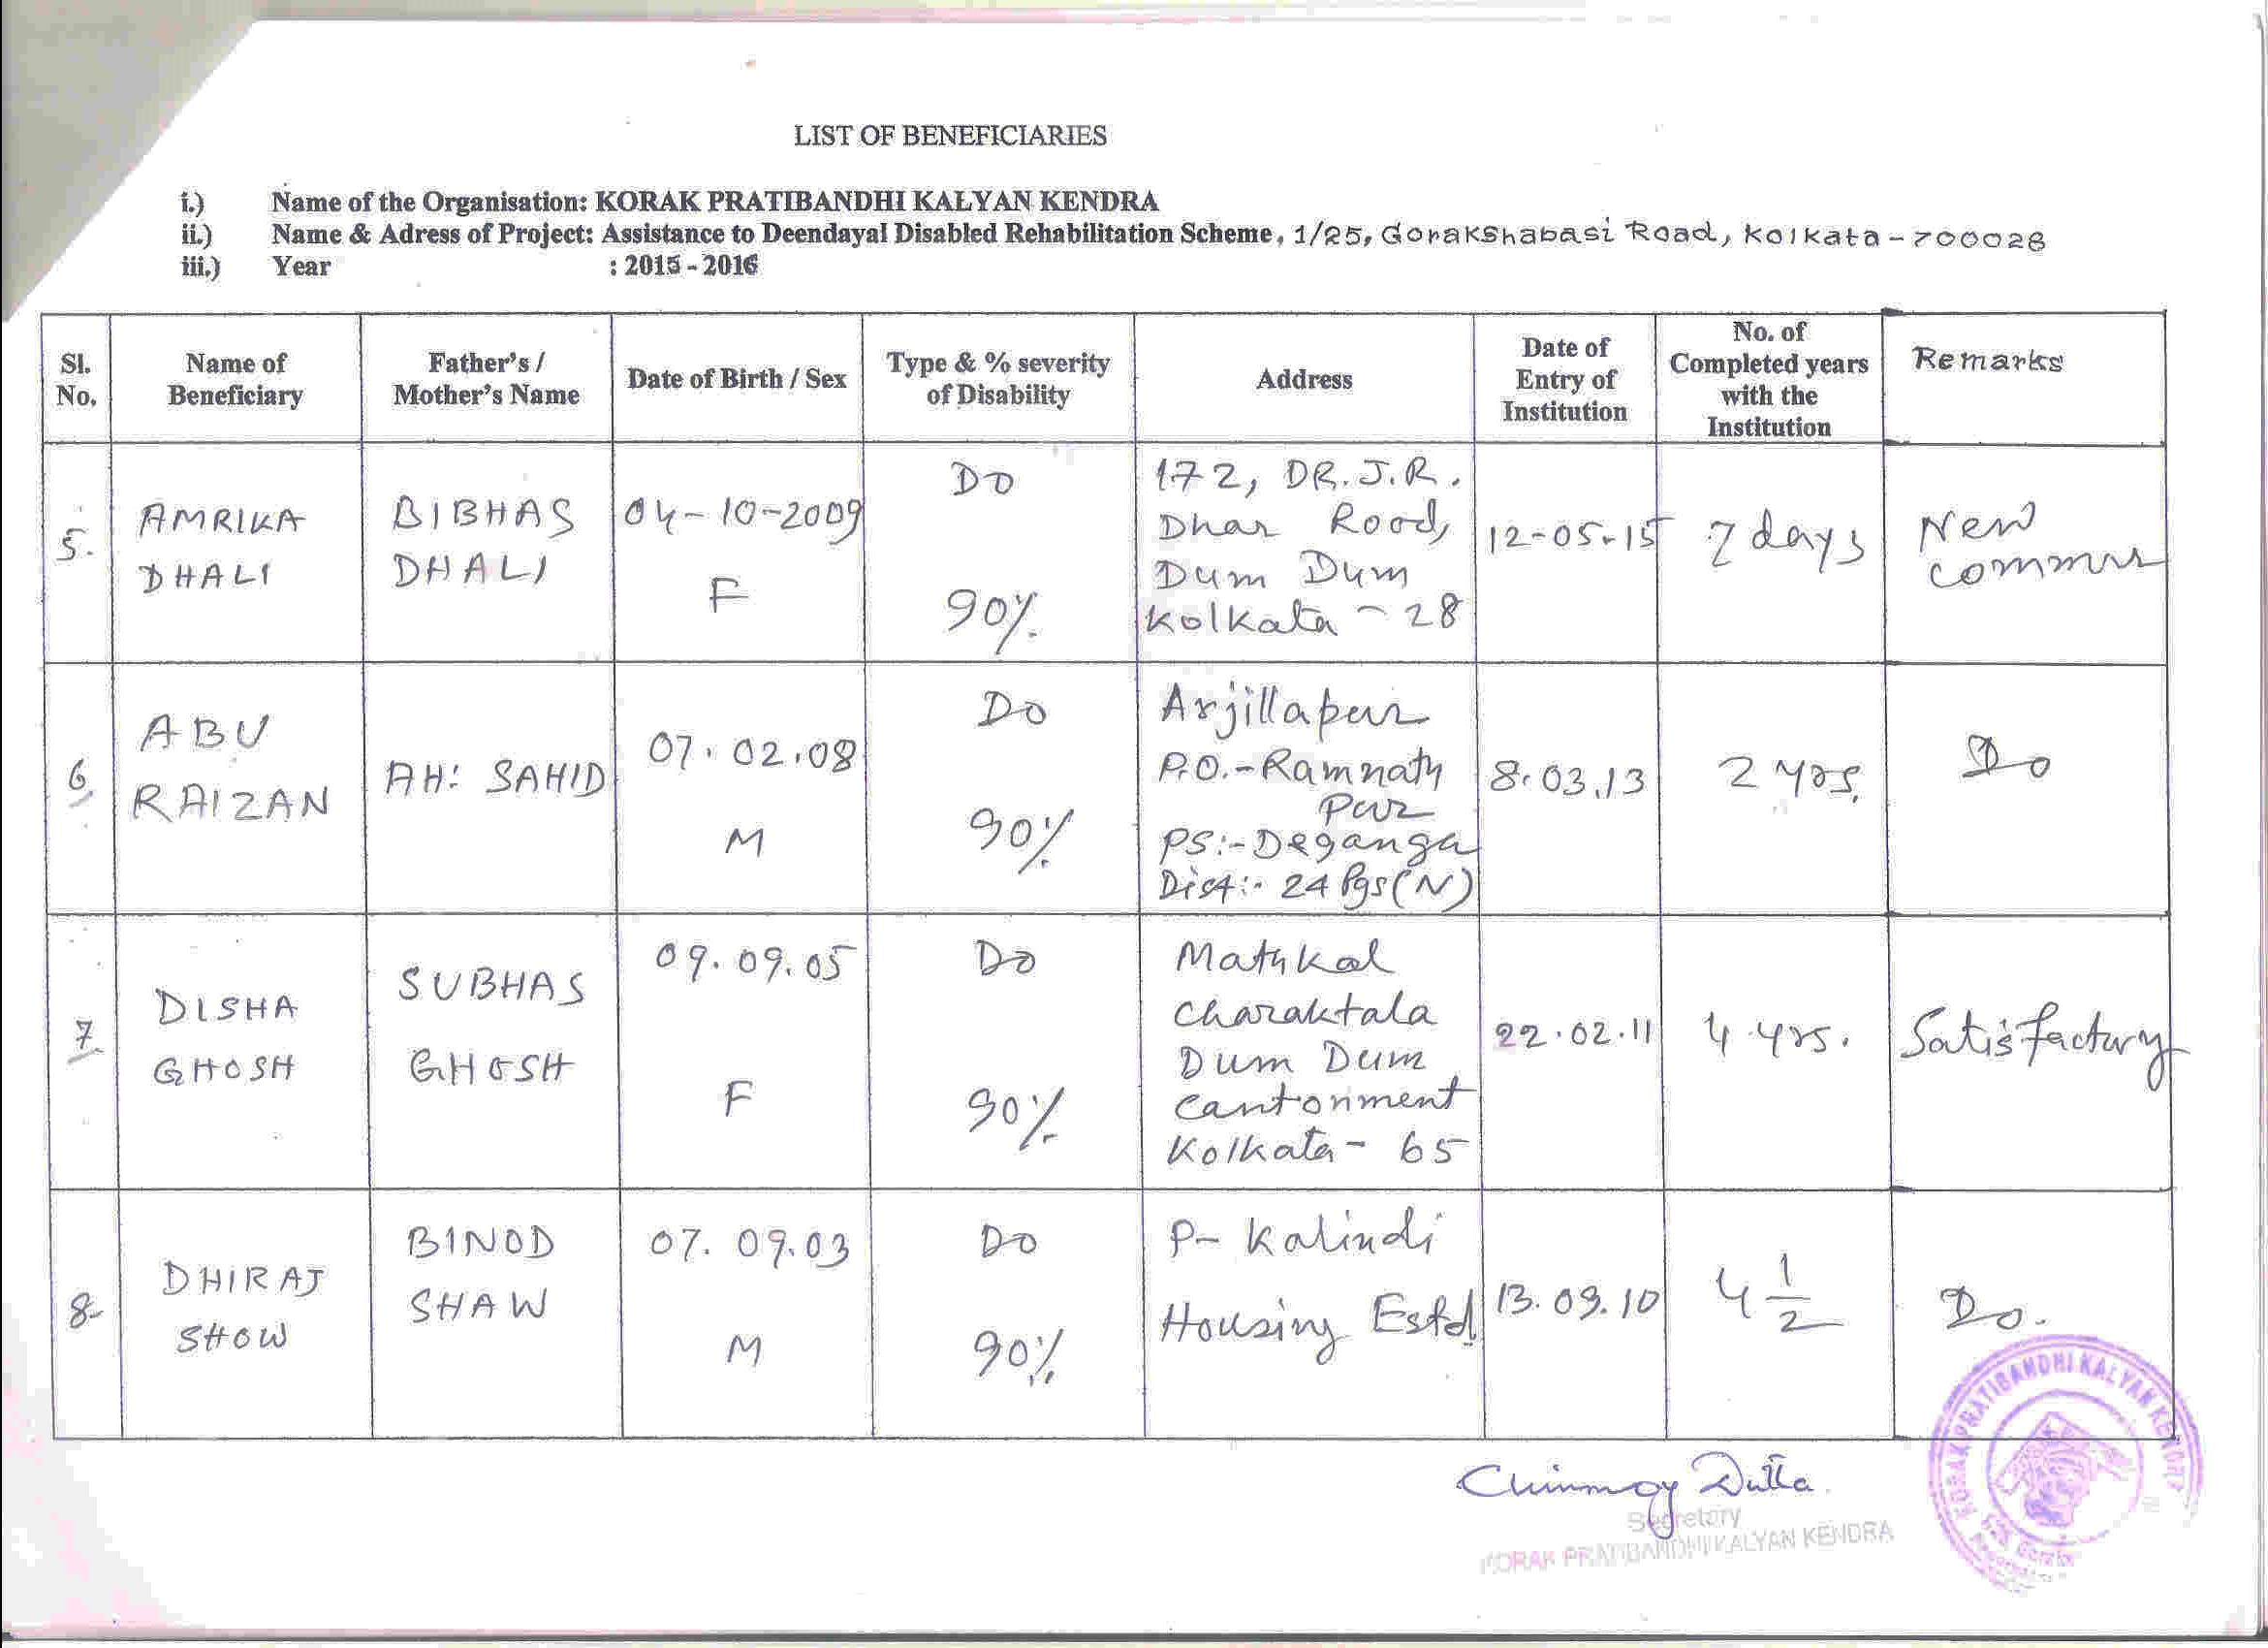 LIST OF BENEFICIARIES
i.) Name of the Organisation: KORAK PRATIBANDHI KALYAN KENDRA
ii.) Name & Adress of Project: Assistance to Deendayal Disabled Rehabilitation Scheme, 1/25, Gorakshabasi Road, Kolkata - 700028
iii.) Year : 2015 - 2016
Sl. No.
Name of Beneficiary
Father's / Mother's Name
Date of Birth / Sex
Type & % severity of Disability
Address
Date of Entry of Institution
No. of Completed years with the Institution
Remarks
5.
AMRIKA
DHALI
BIBHAS
DHALI
04-10-2009
F
DO
90%
172, DR. J.R.
Dhar Road,
Dum Dum
Kolkata - 28
12-05-15
7 days
New
commer
6.
ABU
RAIZAN
AH: SAHID
07.02.08
M
DO
90%
Arjillapur
P.O.-Ramnath
Pur
PS:-Deganga
Dist:- 24 Pgs(N)
8.03.13
2 yrs.
Do
7.
DISHA
GHOSH
SUBHAS
GHOSH
09.09.05
F
Do
90%
Mathkal
Charaktala
Dum Dum
Cantonment
Kolkata - 65
22.02.11
4 yrs.
Satisfactory
8.
DHIRAJ
SHOW
BINOD
SHAW
07.09.03
M
Do
90%
P- Kalindi
Housing Estd
13.09.10
4 1/2
Do.
Chinmoy Dutta
Secretary
KORAK PRATIBANDHI KALYAN KENDRA
KORAK PRATIBANDHI KALYAN KENDRA